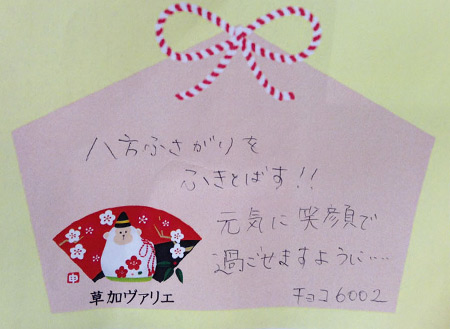 八方ふさがりを
ふきとばす!!
元気に笑顔で
過ごせますように…
チョコ6002
申
草加ヴァリエ